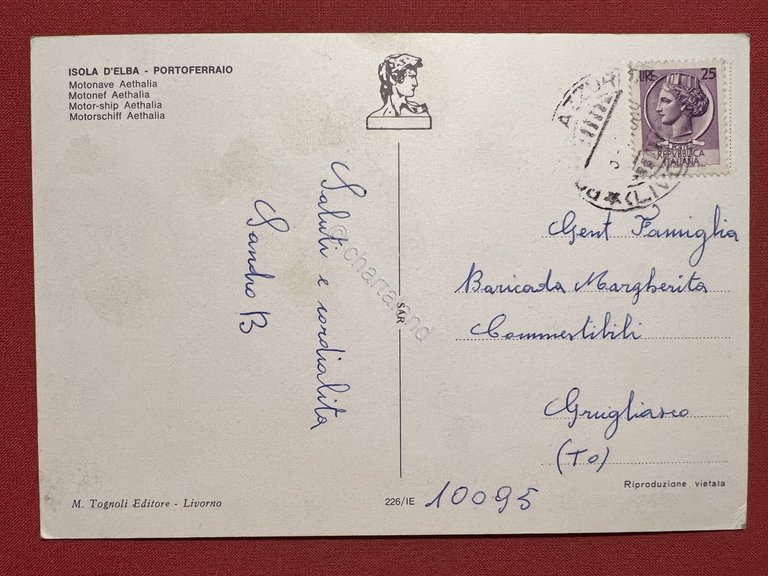 ISOLA D'ELBA - PORTOFERRAIO
Motonave Aethalia
Motonef Aethalia
Motor-ship Aethalia
Motorschiff Aethalia
LIRE 25
REPVBBLICA
ITALIANA
Saluti e cordialita
Sandro B
© chartaland
SAR
Gent Famiglia
Baricada Margherita
Commestibili
Grugliasco
(To)
Riproduzione vietata
M. Tognoli Editore - Livorno
226/IE
10095